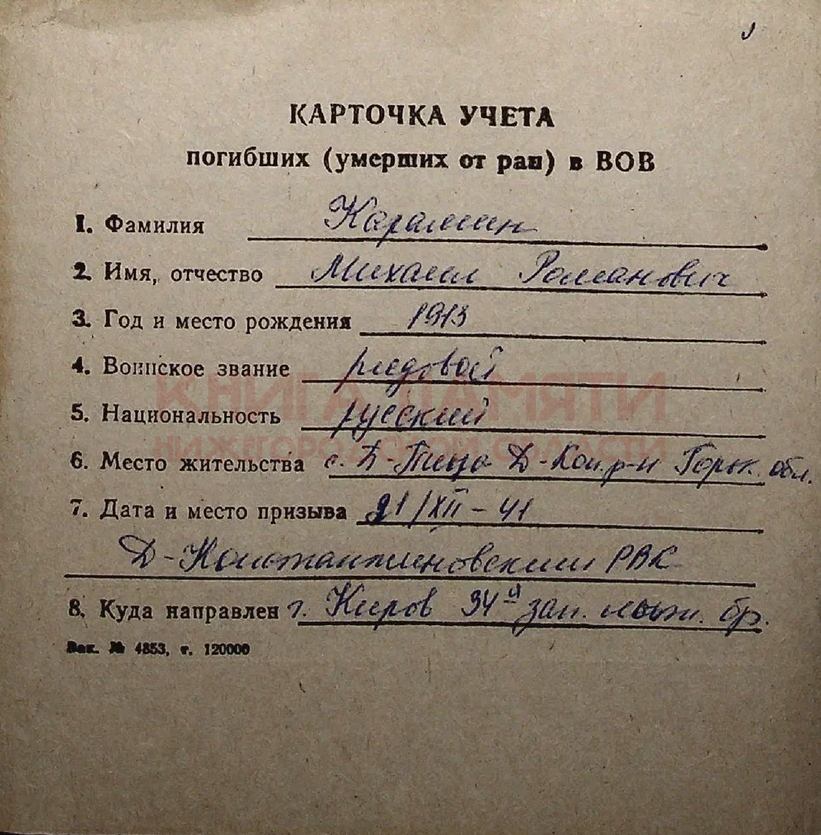 КАРТОЧКА УЧЕТА
погибших (умерших от ран) в ВОВ
1. Фамилия Карамин
2. Имя, отчество Михаил Романович
3. Год и место рождения 1913
4. Воинское звание рядовой
5. Национальность русский
КНИГА ПАМЯТИ
НИЖЕГОРОДСКОЙ ОБЛАСТИ
6. Место жительства с. Д-Кон.р-н Горьк. обл.
7. Дата и место призыва 21/XII-41
Д-Константиновским РВК
8. Куда направлен г. Киров 34й зап. лыж. бр.
Зак. № 4853, т. 120000